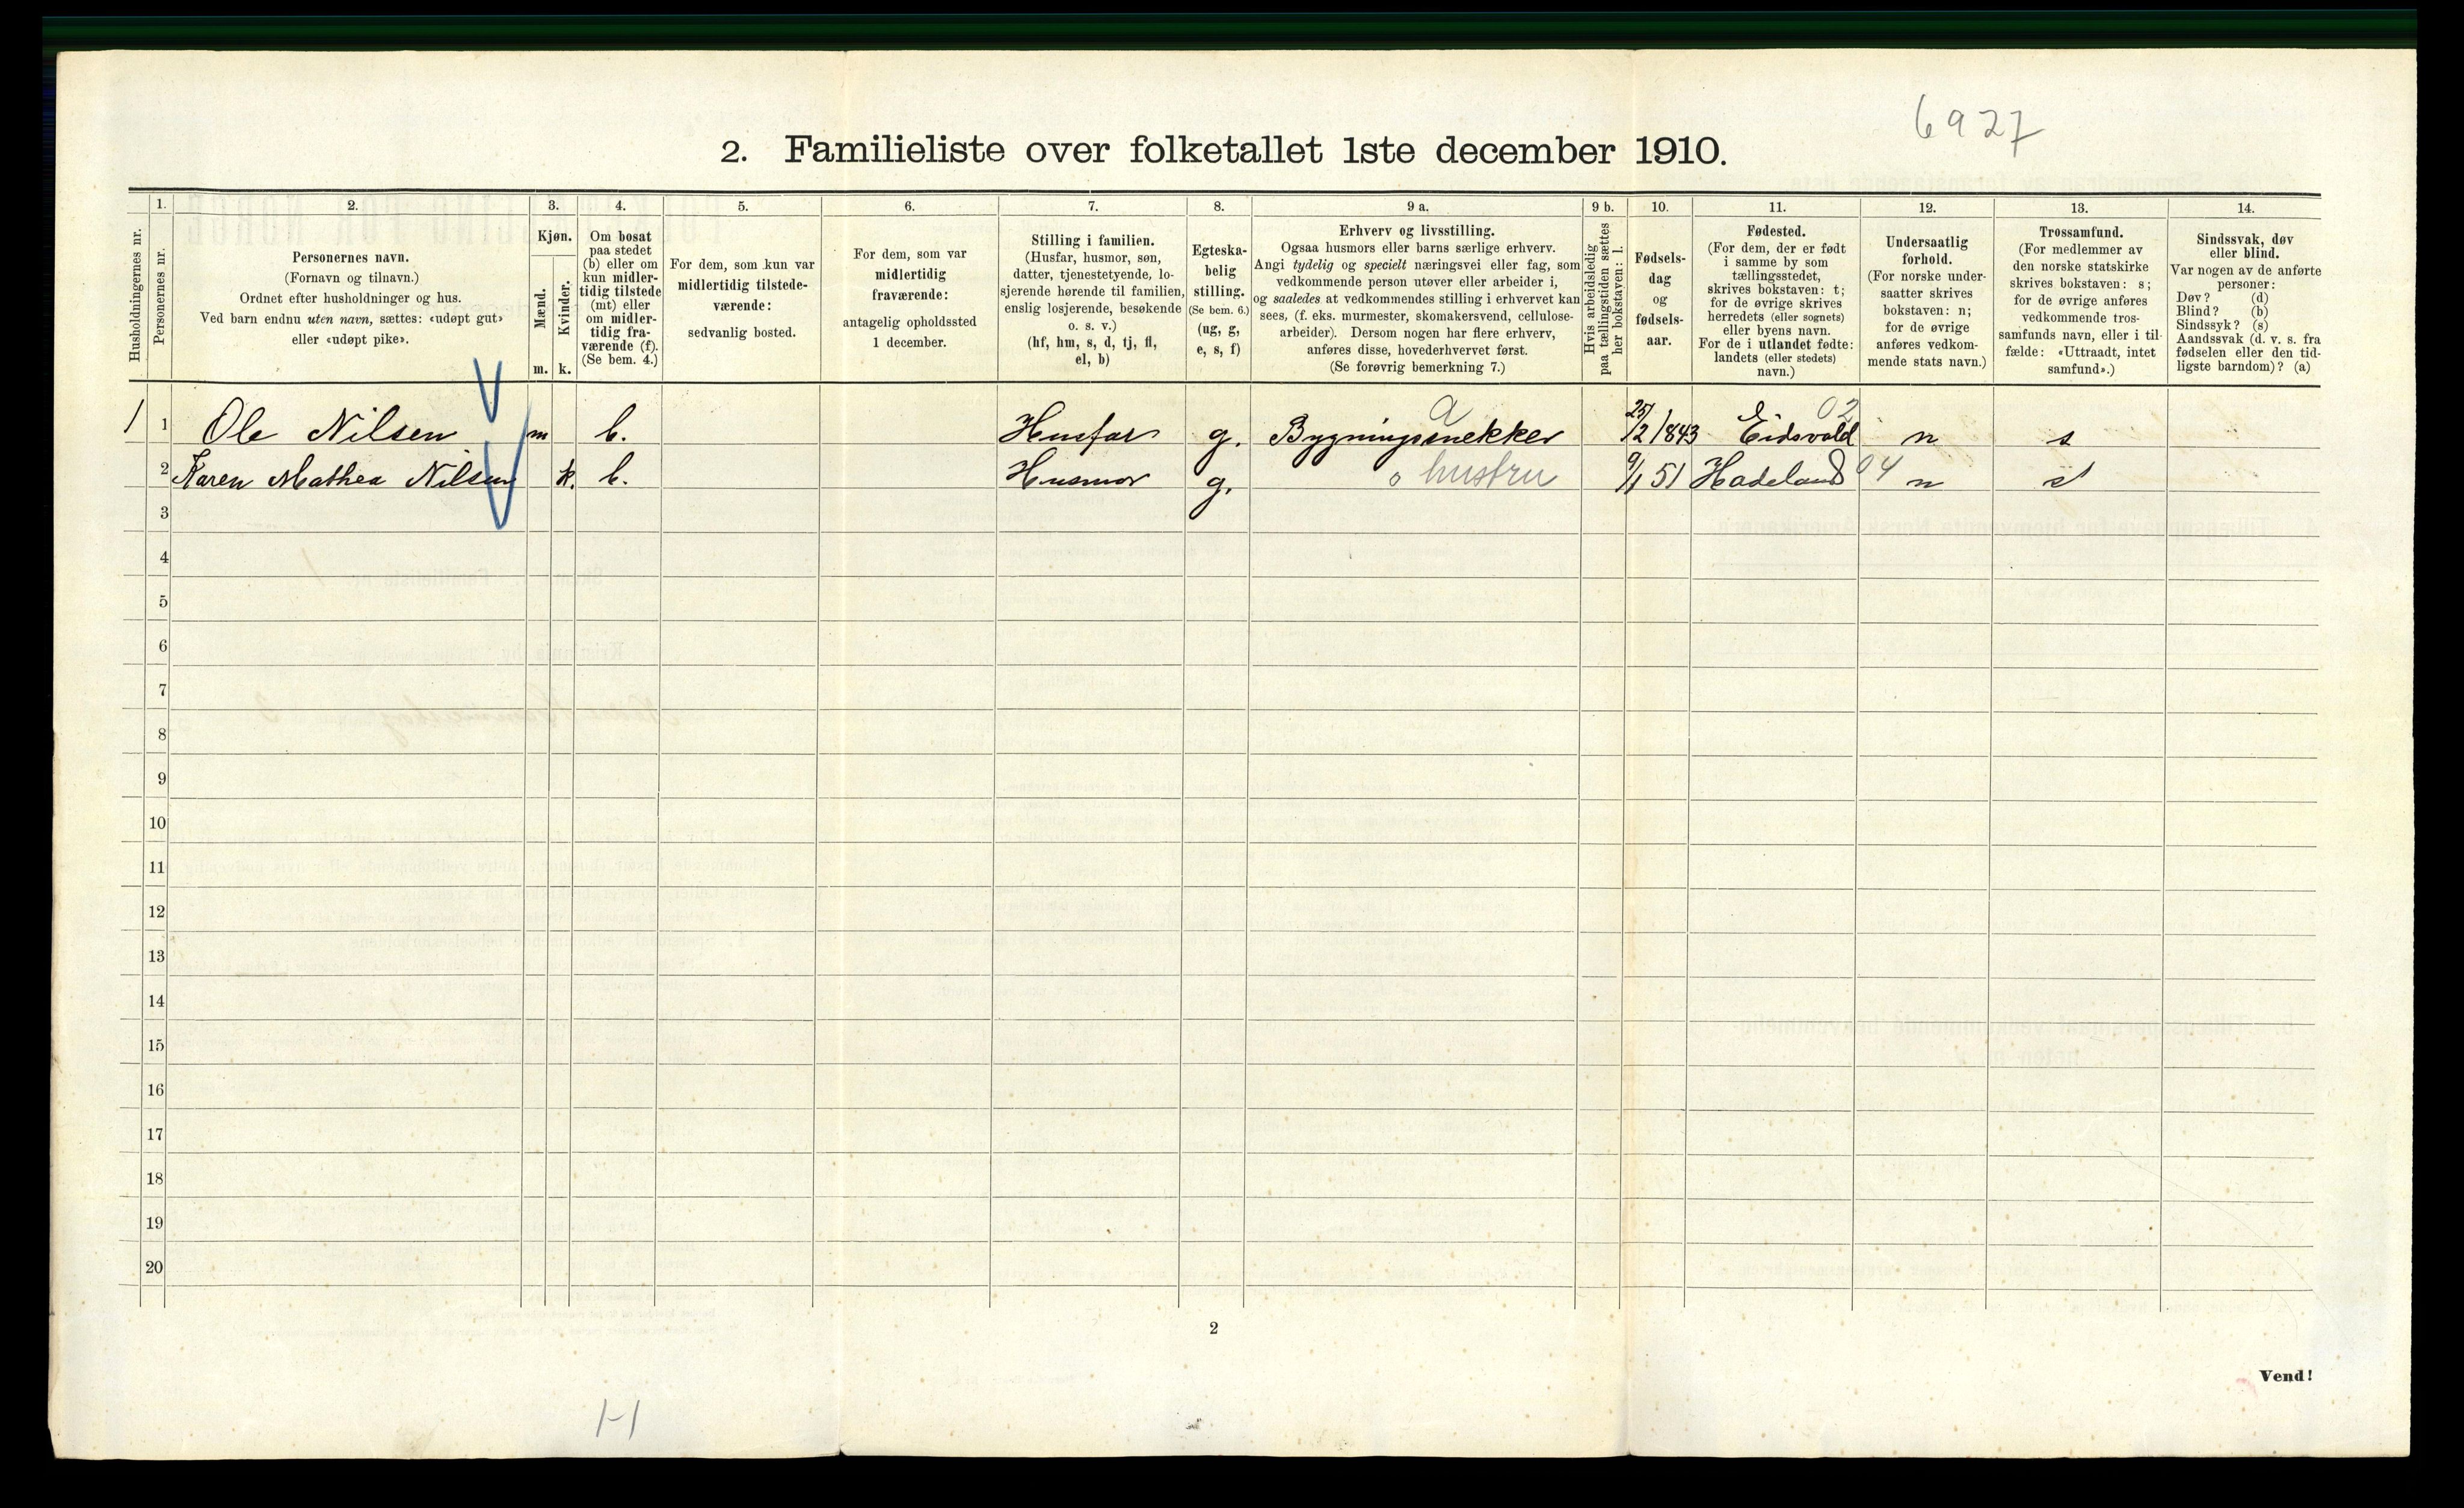 6927
2. Familieliste over folketallet 1ste december 1910.
Husholdningernes nr.
1.
Personernes nr.
2.
Personernes navn.
(Fornavn og tilnavn.)
Ordnet efter husholdninger og hus.
Ved barn endnu uten navn, sættes: «udøpt gut»
eller «udøpt pike».
3.
Kjøn.
Mænd.
Kvinder.
m. k.
4.
Om bosat
paa stedet
(b) eller om
kun midler-
tidig tilstede
(mt) eller
om midler-
tidig fra-
værende (f).
(Se bem. 4.)
5.
For dem, som kun var
midlertidig tilstede-
værende:
sedvanlig bosted.
6.
For dem, som var
midlertidig
fraværende:
antagelig opholdssted
1 december.
7.
Stilling i familien.
(Husfar, husmor, søn,
datter, tjenestetyende, lo-
sjerende hørende til familien,
enslig losjerende, besøkende
o. s. v.)
(hf, hm, s, d, tj, fl,
el, b)
8.
Egteska-
belig
stilling.
(Se bem. 6.)
(ug, g,
e, s, f)
9 a.
Erhverv og livsstilling.
Ogsaa husmors eller barns særlige erhverv.
Angi tydelig og specielt næringsvei eller fag, som
vedkommende person utøver eller arbeider i,
og saaledes at vedkommendes stilling i erhvervet kan
sees, (f. eks. murmester, skomakersvend, cellulose-
arbeider). Dersom nogen har flere erhverv,
anføres disse, hovederhvervet først.
(Se forøvrig bemerkning 7.)
9 b.
Hvis arbeidsledig
paa tællingstiden sættes
her bokstaven: l.
10.
Fødsels-
dag
og
fødsels-
aar.
11.
Fødested.
(For dem, der er født
i samme by som
tællingsstedet,
skrives bokstaven: t;
for de øvrige skrives
herredets (eller sognets)
eller byens navn.
For de i utlandet fødte:
landets (eller stedets)
navn.)
12.
Undersaatlig
forhold.
(For norske under-
saatter skrives
bokstaven: n;
for de øvrige
anføres vedkom-
mende stats navn.)
13.
Trossamfund.
(For medlemmer av
den norske statskirke
skrives bokstaven: s;
for de øvrige anføres
vedkommende tros-
samfunds navn, eller i til-
fælde: «Uttraadt, intet
samfund».)
14.
Sindssvak, døv
eller blind.
Var nogen av de anførte
personer:
Døv? (d)
Blind? (b)
Sindssyk? (s)
Aandssvak (d. v. s. fra
fødselen eller den tid-
ligste barndom)? (a)
a 02
1 1 Ole Nilsen m b. Husfar g. Bygningssnekker 25/2 1843 Eidsvold n s
2 Karen Mathea Nilsen k. b. Husmor g. o hustru 9/1 51 Hadeland 04 n s
3
4
5
6
7
8
9
10
11
12
13
14
15
16
17
18
19
20
2
Vend!
1-1